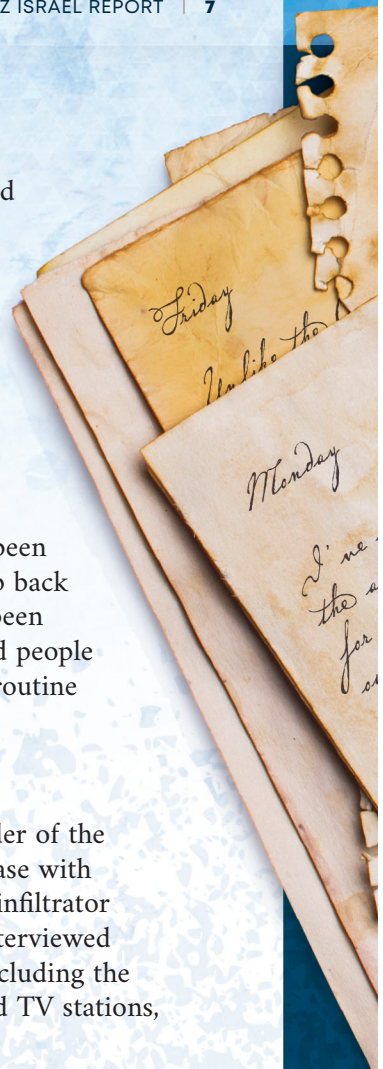 Z ISRAEL REPORT | 7
d
been
back
been
people
routine
der of the
ase with
infiltrator
terviewed
cluding the
d TV stations,
Friday
Unlike the
Monday
I've
the a
for